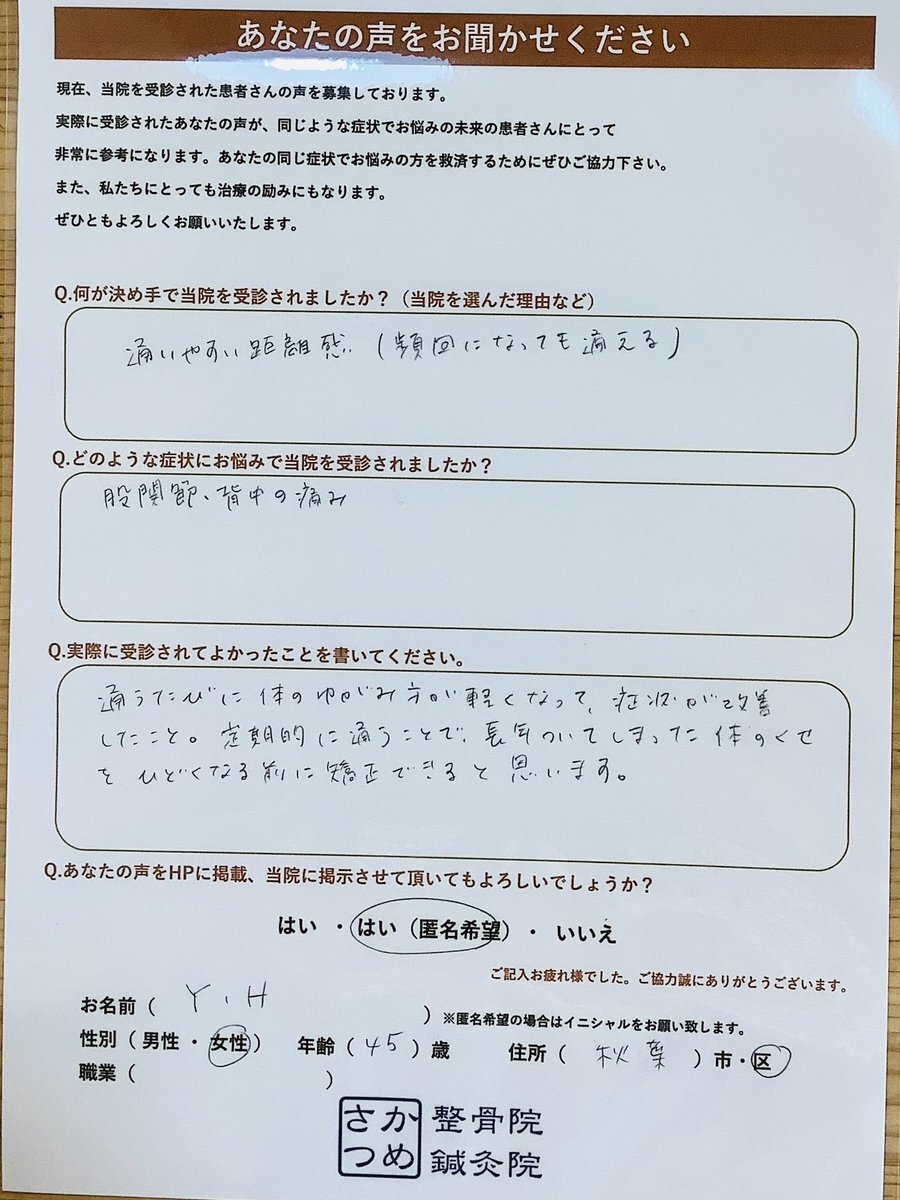 あなたの声をお聞かせください
現在、当院を受診された患者さんの声を募集しております。
実際に受診されたあなたの声が、同じような症状でお悩みの未来の患者さんにとって
非常に参考になります。あなたの同じ症状でお悩みの方を救済するためにぜひご協力下さい。
また、私たちにとっても治療の励みにもなります。
ぜひともよろしくお願いいたします。
Q.何が決め手で当院を受診されましたか？（当院を選んだ理由など）
通いやすい距離感（頻回になっても通える）
Q.どのような症状にお悩みで当院を受診されましたか？
股関節、背中の痛み
Q.実際に受診されてよかったことを書いてください。
通うたびに体のゆがみ方が軽くなって、症状が改善
したこと。定期的に通うことで、長年ついてしまった体のくせ
を ひどくなる前に矯正できると思います。
Q.あなたの声をHPに掲載、当院に掲示させて頂いてもよろしいでしょうか？
はい ・ はい（匿名希望） ・ いいえ
ご記入お疲れ様でした。ご協力誠にありがとうございます。
お名前（ Y.H ）※匿名希望の場合はイニシャルをお願い致します。
性別（ 男性 ・ 女性 ） 年齢（ 45 ）歳 住所（ 秋葉 ）市・区
職業（ ）
さか 整骨院
つめ 鍼灸院